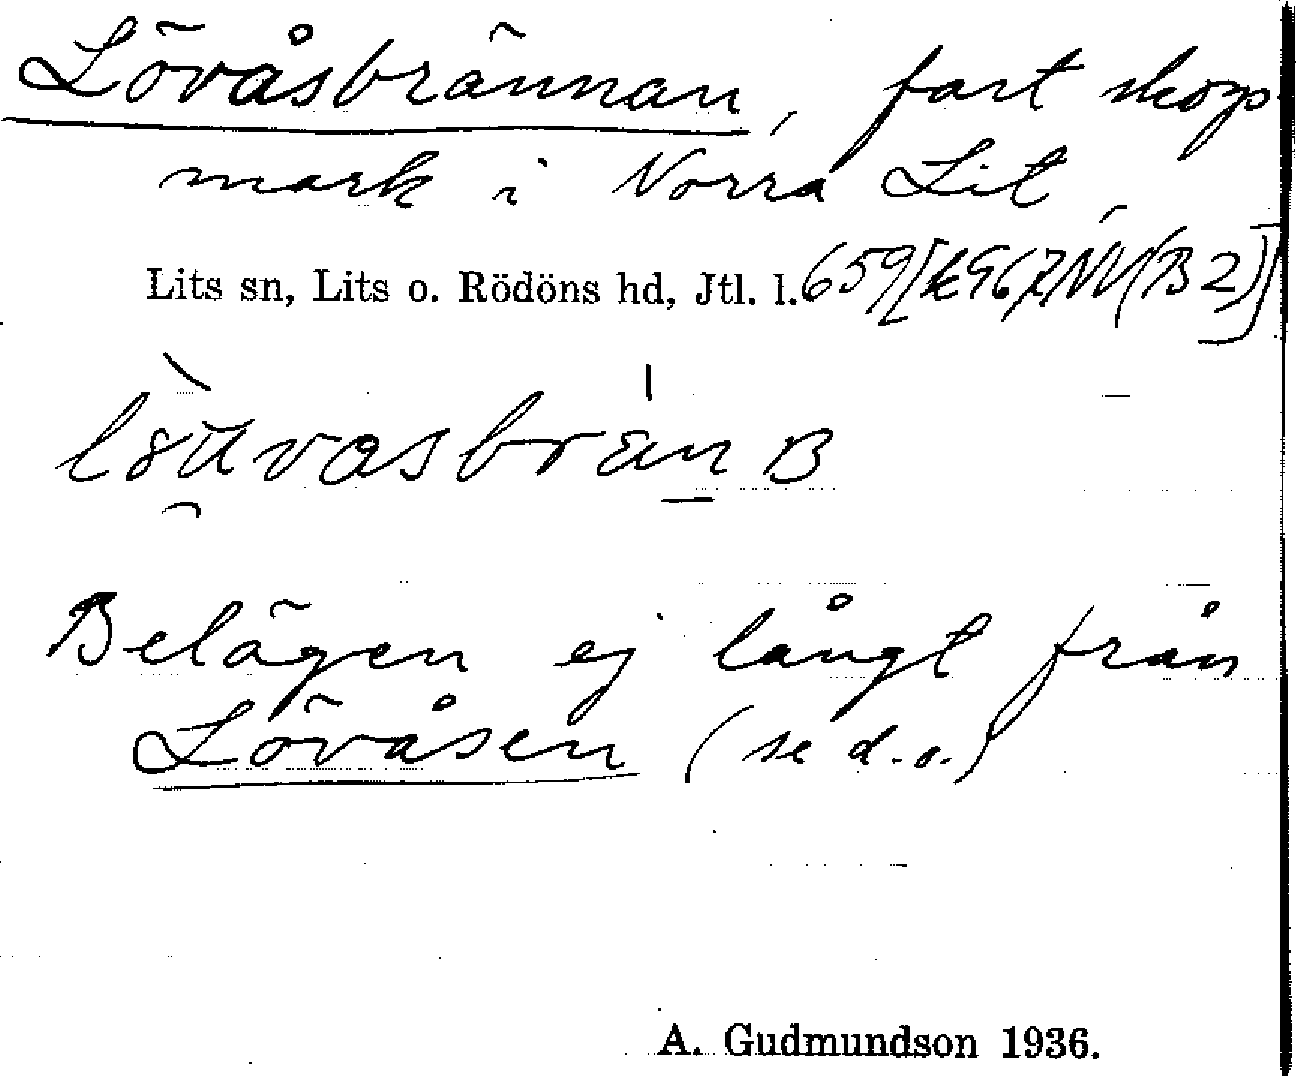 Lövåsbrännan, fast skogs
mark i Norra Lit,
Lits sn, Lits o. Rödöns hd, Jtl. l. 659
Belägen ej långt från
Lövåsen (se d.o.)
A. Gudmundson 1936.